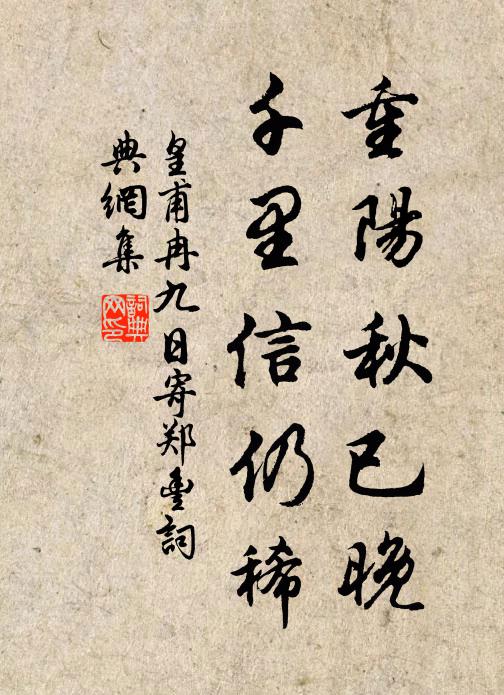 重陽秋已晚
千里信仍稀
皇甫冉九日寄郑豊詞
典網集
詞典
网印